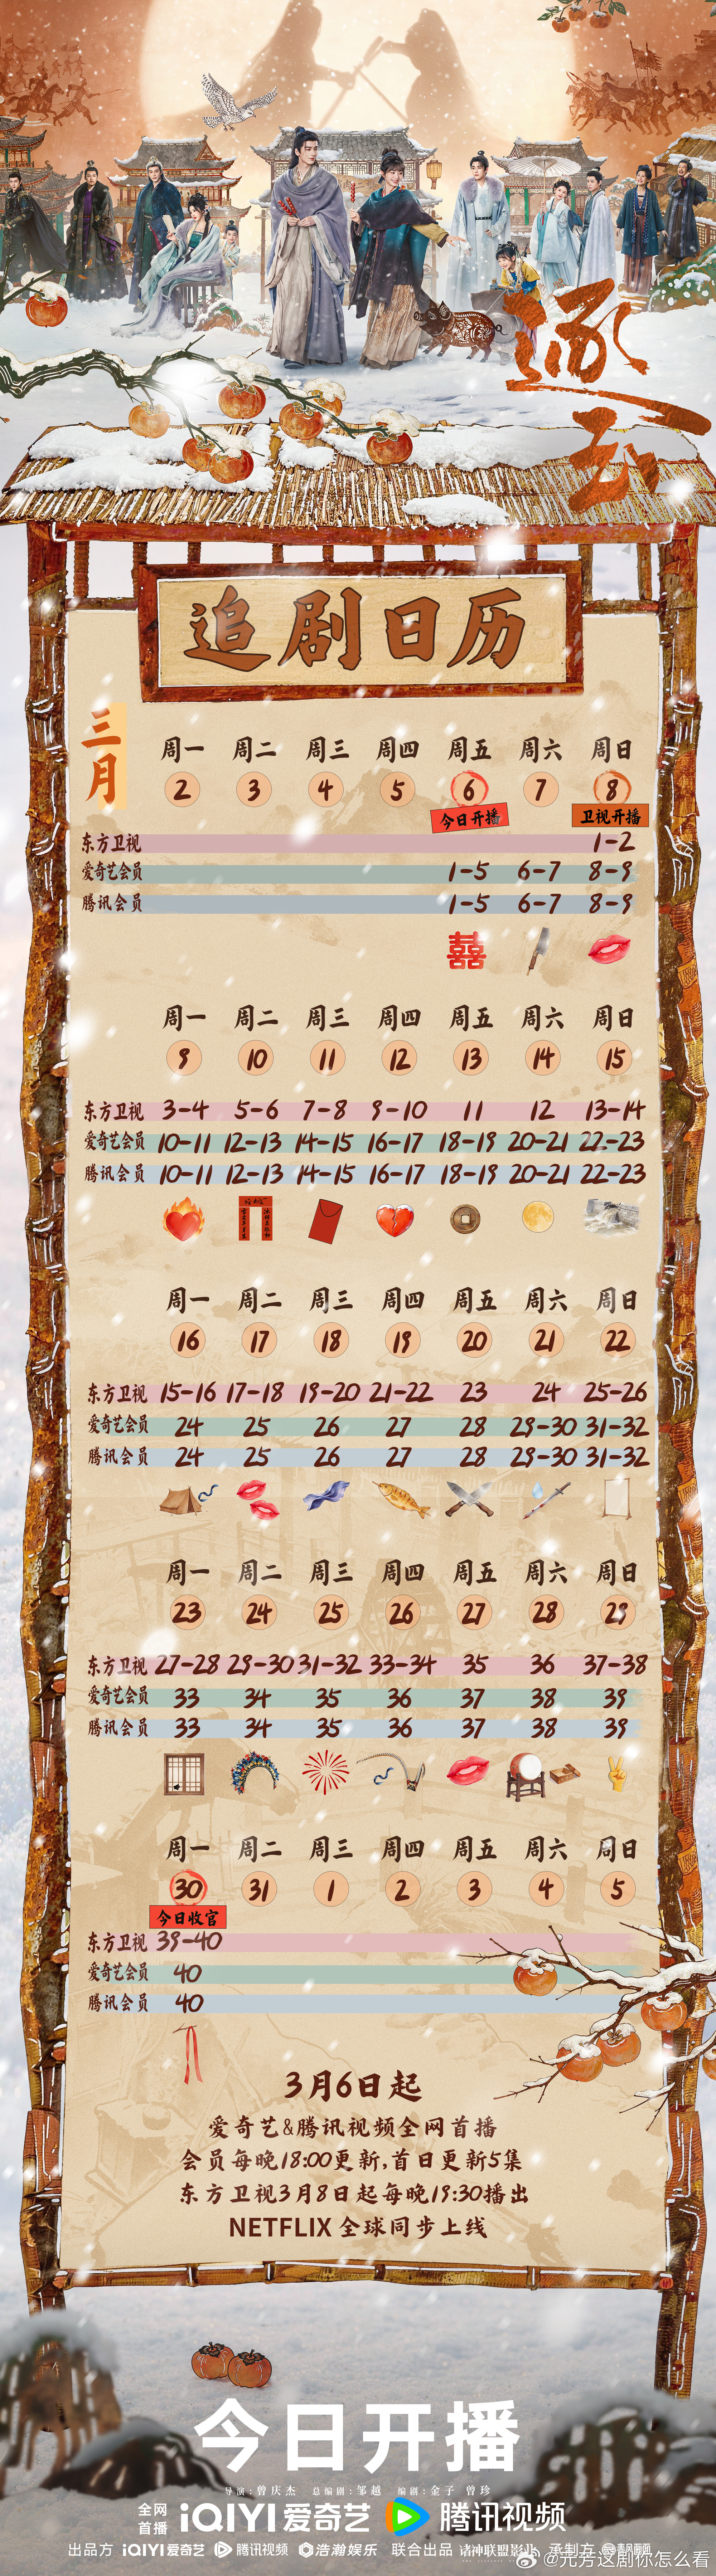 逐玉
追剧日历
三月
周一 周二 周三 周四 周五 周六 周日
2 3 4 5 6 7 8
今日开播 卫视开播
东方卫视 1-2
爱奇艺会员 1-5 6-7 8-9
腾讯会员 1-5 6-7 8-9
囍
周一 周二 周三 周四 周五 周六 周日
9 10 11 12 13 14 15
东方卫视 3-4 5-6 7-8 9-10 11 12 13-14
爱奇艺会员 10-11 12-13 14-15 16-17 18-19 20-21 22-23
腾讯会员 10-11 12-13 14-15 16-17 18-19 20-21 22-23
周一 周二 周三 周四 周五 周六 周日
16 17 18 19 20 21 22
东方卫视 15-16 17-18 19-20 21-22 23 24 25-26
爱奇艺会员 24 25 26 27 28 29-30 31-32
腾讯会员 24 25 26 27 28 29-30 31-32
周一 周二 周三 周四 周五 周六 周日
23 24 25 26 27 28 29
东方卫视 27-28 29-30 31-32 33-34 35 36 37-38
爱奇艺会员 33 34 35 36 37 38 39
腾讯会员 33 34 35 36 37 38 39
周一 周二 周三 周四 周五 周六 周日
30 31 1 2 3 4 5
今日收官
东方卫视 39-40
爱奇艺会员 40
腾讯会员 40
3月6日起
爱奇艺&腾讯视频全网首播
会员每晚18:00更新,首日更新5集
东方卫视3月8日起每晚19:30播出
NETFLIX 全球同步上线
今日开播
导演:曾庆杰 总编剧:邹越 编剧:金子 曾珍
全网首播 iQIYI 爱奇艺 腾讯视频
出品方 iQIYI 爱奇艺 腾讯视频 浩瀚娱乐 联合出品 诸神联盟影业 承制方
@元芳这剧你怎么看